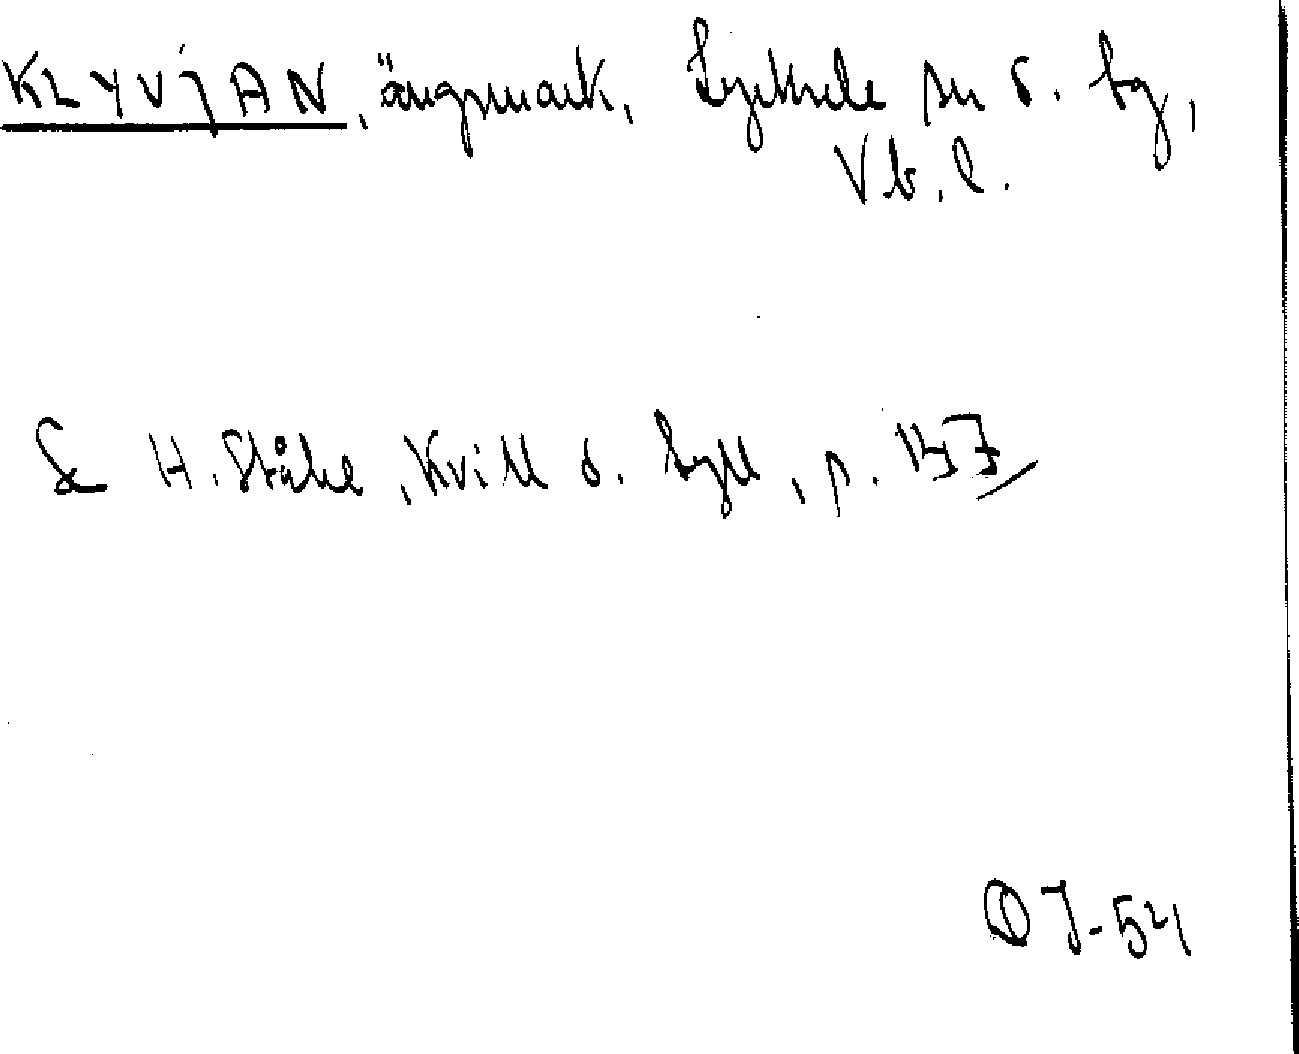 KLYVJAN, ängsmark, Lycksele sn o. by,
Vb. l.
Se H. Ståhl, Kvill o. tyll, p. 137
OJ-54